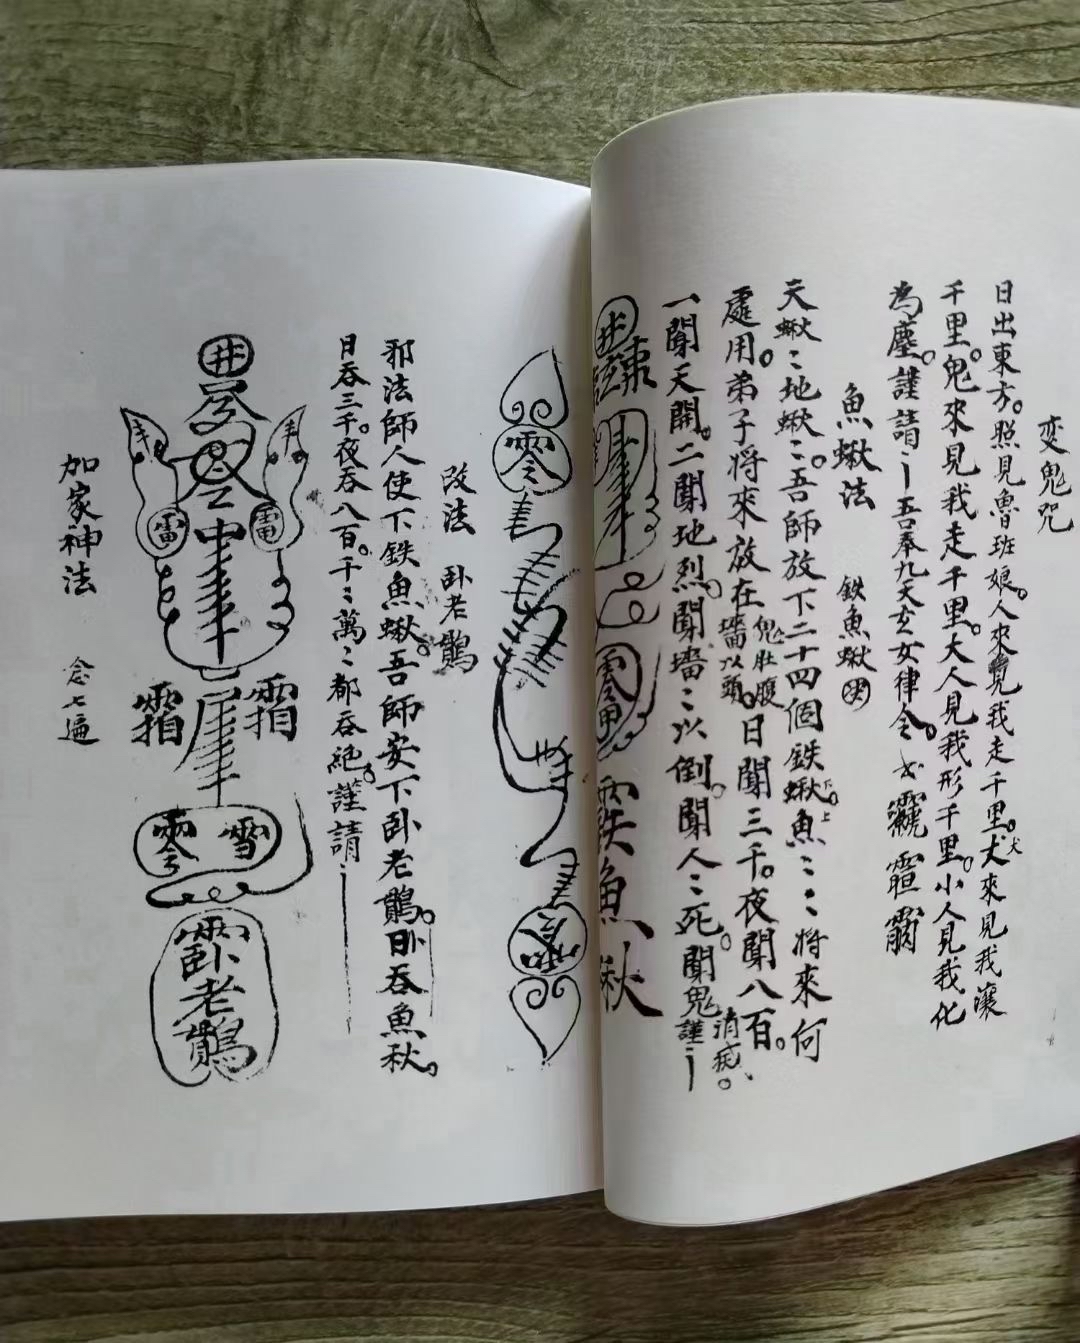 变鬼咒
日出東方。照見魯班娘。人來見我走千里。犬來見我瀼
犬
千里。鬼來見我走千里。大人見我形千里。小人見我化
為塵。謹請一吾奉九天玄女律令。
魚鳅法 鉄魚鳅
天鳅〻地鳅〻。吾師放下二十四個鉄鳅魚〻〻將來何
下 上
處用。弟子將來放在墻以頭。日聞三千。夜聞八百。
鬼肚腹
一聞天開。二聞地烈。聞墻〻以倒。聞人〻死。聞鬼謹一
消
井
霊
魚
秋
零
改法 卧老鵲
邪法師人使下鉄魚鳅。吾師安下卧老鵲。日吞魚秋。
日吞三千。夜吞八百。千〻萬〻都吞絶。謹請一
井
雷 雷
霜 霜
零 雪
卧老鵲
加家神法 念七遍